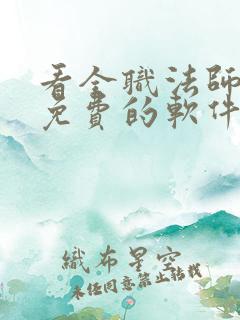 看全職法師
免費的軟件
織布星空
未任同意禁止轉載